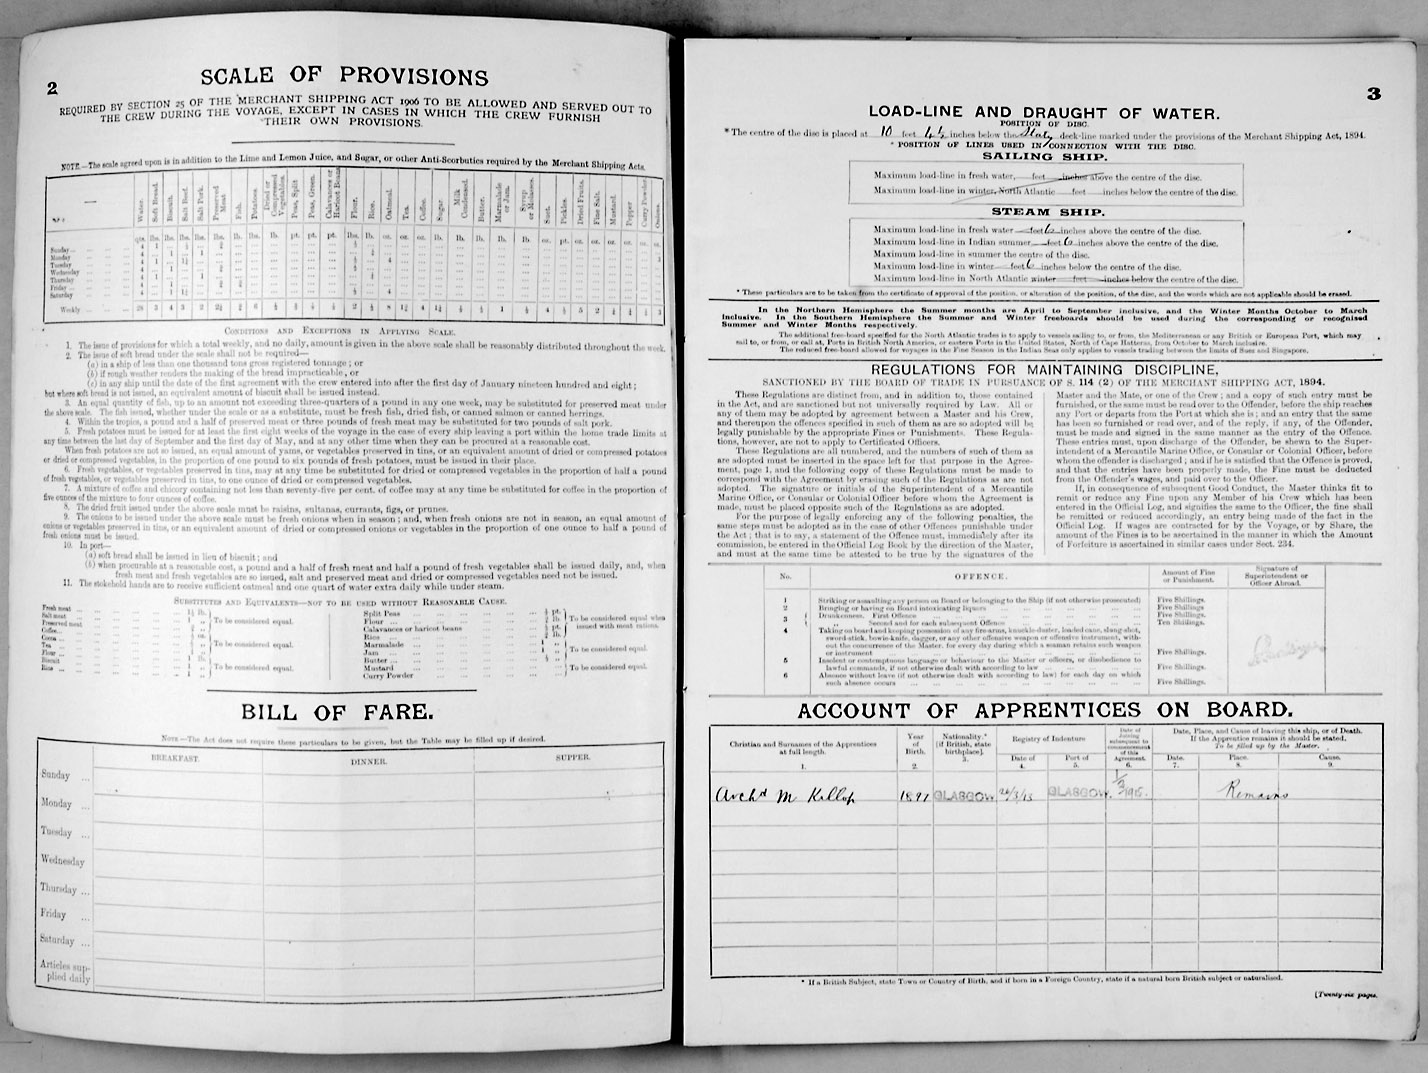 2
SCALE OF PROVISIONS
REQUIRED BY SECTION 25 OF THE MERCHANT SHIPPING ACT 1906 TO BE ALLOWED AND SERVED OUT TO
THE CREW DURING THE VOYAGE, EXCEPT IN CASES IN WHICH THE CREW FURNISH
THEIR OWN PROVISIONS.
NOTE.—The scale agreed upon is in addition to the Lime and Lemon Juice, and Sugar, or other Anti-Scorbutics required by the Merchant Shipping Acts.
Water. Soft Bread. Biscuit. Salt Beef. Salt Pork. Preserved Meat Fish. Potatoes. Dried or Compressed Vegetables. Peas, Split Peas, Green. Calavances or Haricot Beans Flour. Rice. Oatmeal. Tea. Coffee. Sugar. Milk Condensed. Butter. Marmalade or Jam. Syrup or Molasses. Suet. Pickles. Dried Fruits. Fine Salt. Mustard. Pepper Curry Powder Onions.
Sunday
Monday
Tuesday
Wednesday
Thursday
Friday
Saturday
Weekly
CONDITIONS AND EXCEPTIONS IN APPLYING SCALE.
1. The issue of provisions for which a total weekly, and no daily, amount is given in the above scale shall be reasonably distributed throughout the week.
2. The issue of soft bread under the scale shall not be required—
(a) in a ship of less than one thousand tons gross registered tonnage; or
(b) if rough weather renders the making of the bread impracticable, or
(c) in any ship until the date of the first agreement with the crew entered into after the first day of January nineteen hundred and eight;
but where soft bread is not issued, an equivalent amount of biscuit shall be issued instead.
3. An equal quantity of fish, up to an amount not exceeding three-quarters of a pound in any one week, may be substituted for preserved meat under
the above scale. The fish issued, whether under the scale or as a substitute, must be fresh fish, dried fish, or canned salmon or canned herrings.
4. Within the tropics, a pound and a half of preserved meat or three pounds of fresh meat may be substituted for two pounds of salt pork.
5. Fresh potatoes must be issued for at least the first eight weeks of the voyage in the case of every ship leaving a port within the home trade limits at
any time between the last day of September and the first day of May, and at any other time when they can be procured at a reasonable cost.
When fresh potatoes are not so issued, an equal amount of yams, or vegetables preserved in tins, or an equivalent amount of dried or compressed potatoes
or dried or compressed vegetables, in the proportion of one pound to six pounds of fresh potatoes, must be issued in their place.
6. Fresh vegetables, or vegetables preserved in tins, may at any time be substituted for dried or compressed vegetables in the proportion of half a pound
of fresh vegetables, or vegetables preserved in tins, to one ounce of dried or compressed vegetables.
7. A mixture of coffee and chicory containing not less than seventy-five per cent. of coffee may at any time be substituted for coffee in the proportion of
five ounces of the mixture to four ounces of coffee.
8. The dried fruit issued under the above scale must be raisins, sultanas, currants, figs, or prunes.
9. The onions to be issued under the above scale must be fresh onions when in season; and, when fresh onions are not in season, an equal amount of
onions or vegetables preserved in tins, or an equivalent amount of dried or compressed onions or vegetables in the proportion of one ounce to half a pound of
fresh onions must be issued.
10. In port—
(a) soft bread shall be issued in lieu of biscuit; and
(b) when procurable at a reasonable cost, a pound and a half of fresh meat and half a pound of fresh vegetables shall be issued daily, and, when
fresh meat and fresh vegetables are so issued, salt and preserved meat and dried or compressed vegetables need not be issued.
11. The stokehold hands are to receive sufficient oatmeal and one quart of water extra daily while under steam.
SUBSTITUTES AND EQUIVALENTS—NOT TO BE USED WITHOUT REASONABLE CAUSE.
Fresh meat
Salt meat
Preserved meat
To be considered equal.
Coffee
Cocoa
Tea
To be considered equal.
Flour
Biscuit
Rice
To be considered equal.
Split Peas
Flour
Calavances or haricot beans
Rice
To be considered equal when issued with meat rations.
Marmalade
Jam
Butter
To be considered equal.
Mustard
Curry Powder
To be considered equal.
BILL OF FARE.
NOTE—The Act does not require these particulars to be given, but the Table may be filled up if desired.
BREAKFAST. DINNER. SUPPER.
Sunday ...
Monday ...
Tuesday ...
Wednesday
Thursday ...
Friday ...
Saturday ...
Articles sup-
plied daily
3
LOAD-LINE AND DRAUGHT OF WATER.
POSITION OF DISC.
* The centre of the disc is placed at 10 feet 4½ inches below the deck-line marked under the provisions of the Merchant Shipping Act, 1894.
* POSITION OF LINES USED IN CONNECTION WITH THE DISC.
SAILING SHIP.
Maximum load-line in fresh water, feet inches above the centre of the disc.
Maximum load-line in winter, North Atlantic feet inches below the centre of the disc.
STEAM SHIP.
Maximum load-line in fresh water feet 6 inches above the centre of the disc.
Maximum load-line in Indian summer feet 6 inches above the centre of the disc.
Maximum load-line in summer the centre of the disc.
Maximum load-line in winter feet 6 inches below the centre of the disc.
Maximum load-line in North Atlantic winter feet inches below the centre of the disc.
* These particulars are to be taken from the certificate of approval of the position, or alteration of the position, of the disc, and the words which are not applicable should be erased.
In the Northern Hemisphere the Summer months are April to September inclusive, and the Winter Months October to March
inclusive. In the Southern Hemisphere the Summer and Winter freeboards should be used during the corresponding or recognised
Summer and Winter Months respectively.
The additional free-board specified for the North Atlantic trades is to apply to vessels sailing to, or from, the Mediterranean or any British or European Port, which may
sail to, or from, or call at, Ports in British North America, or eastern Ports in the United States, North of Cape Hatteras, from October to March inclusive.
The reduced free-board allowed for voyages in the Fine Season in the Indian Seas only applies to vessels trading between the limits of Suez and Singapore.
REGULATIONS FOR MAINTAINING DISCIPLINE,
SANCTIONED BY THE BOARD OF TRADE IN PURSUANCE OF S. 114 (2) OF THE MERCHANT SHIPPING ACT, 1894.
These Regulations are distinct from, and in addition to, those contained
in the Act, and are sanctioned but not universally required by Law. All or
any of them may be adopted by agreement between a Master and his Crew,
and thereupon the offences specified in such of them as are so adopted will be
legally punishable by the appropriate Fines or Punishments. These Regula-
tions, however, are not to apply to Certificated Officers.
These Regulations are all numbered, and the numbers of such of them as
are adopted must be inserted in the space left for that purpose in the Agree-
ment, page 1, and the following copy of these Regulations must be made to
correspond with the Agreement by erasing such of the Regulations as are not
adopted. The signature or initials of the Superintendent of a Mercantile
Marine Office, or Consular or Colonial Officer before whom the Agreement is
made, must be placed opposite such of the Regulations as are adopted.
For the purpose of legally enforcing any of the following penalties, the
same steps must be adopted as in the case of other Offences punishable under
the Act; that is to say, a statement of the Offence must, immediately after its
commission, be entered in the Official Log Book by the direction of the Master,
and must at the same time be attested to be true by the signatures of the
Master and the Mate, or one of the Crew; and a copy of such entry must be
furnished, or the same must be read over to the Offender, before the ship reaches
any Port or departs from the Port at which she is; and an entry that the same
has been so furnished or read over, and of the reply, if any, of the Offender,
must be made and signed in the same manner as the entry of the Offence.
These entries must, upon discharge of the Offender, be shewn to the Super-
intendent of a Mercantile Marine Office, or Consular or Colonial Officer, before
whom the offender is discharged; and if he is satisfied that the Offence is proved,
and that the entries have been properly made, the Fine must be deducted
from the Offender's wages, and paid over to the Officer.
If, in consequence of subsequent Good Conduct, the Master thinks fit to
remit or reduce any Fine upon any Member of his Crew which has been
entered in the Official Log, and signifies the same to the Officer, the fine shall
be remitted or reduced accordingly, an entry being made of the fact in the
Official Log. If wages are contracted for by the Voyage, or by Share, the
amount of the Fines is to be ascertained in the manner in which the Amount
of Forfeiture is ascertained in similar cases under Sect. 234.
No. OFFENCE. Amount of Fine or Punishment. Signature of Superintendent or Officer Abroad.
1 Striking or assaulting any person on Board or belonging to the Ship (if not otherwise prosecuted) Five Shillings.
2 Bringing or having on Board intoxicating liquors Five Shillings.
3 Drunkenness. First Offence Five Shillings.
" Second and for each subsequent Offence Ten Shillings.
4 Taking on board and keeping possession of any fire-arms, knuckle-duster, loaded cane, slung-shot,
sword-stick, bowie-knife, dagger, or any other offensive weapon or offensive instrument, with-
out the concurrence of the Master, for every day during which a seaman retains such weapon
or instrument Five Shillings.
5 Insolent or contemptuous language or behaviour to the Master or officers, or disobedience to
lawful commands, if not otherwise dealt with according to law Five Shillings.
6 Absence without leave (if not otherwise dealt with according to law) for each day on which
such absence occurs Five Shillings.
ACCOUNT OF APPRENTICES ON BOARD.
Christian and Surnames of the Apprentices at full length. 1. Year of Birth. 2. Nationality.* [if British, state birthplace]. 3. Registry of Indenture Date of 4. Port of 5. Date of Joining subsequent to commencement of this Agreement. 6. Date, Place, and Cause of leaving this ship, or of Death. If the Apprentice remains it should be stated. To be filled up by the Master. Date. 7. Place. 8. Cause. 9.
Archd McKillop 1897 GLASGOW 26/3/13 GLASGOW. 1/3/1915. Remains
* If a British Subject, state Town or Country of Birth, and if born in a Foreign Country, state if a natural born British subject or naturalised.
[Twenty-six pages.